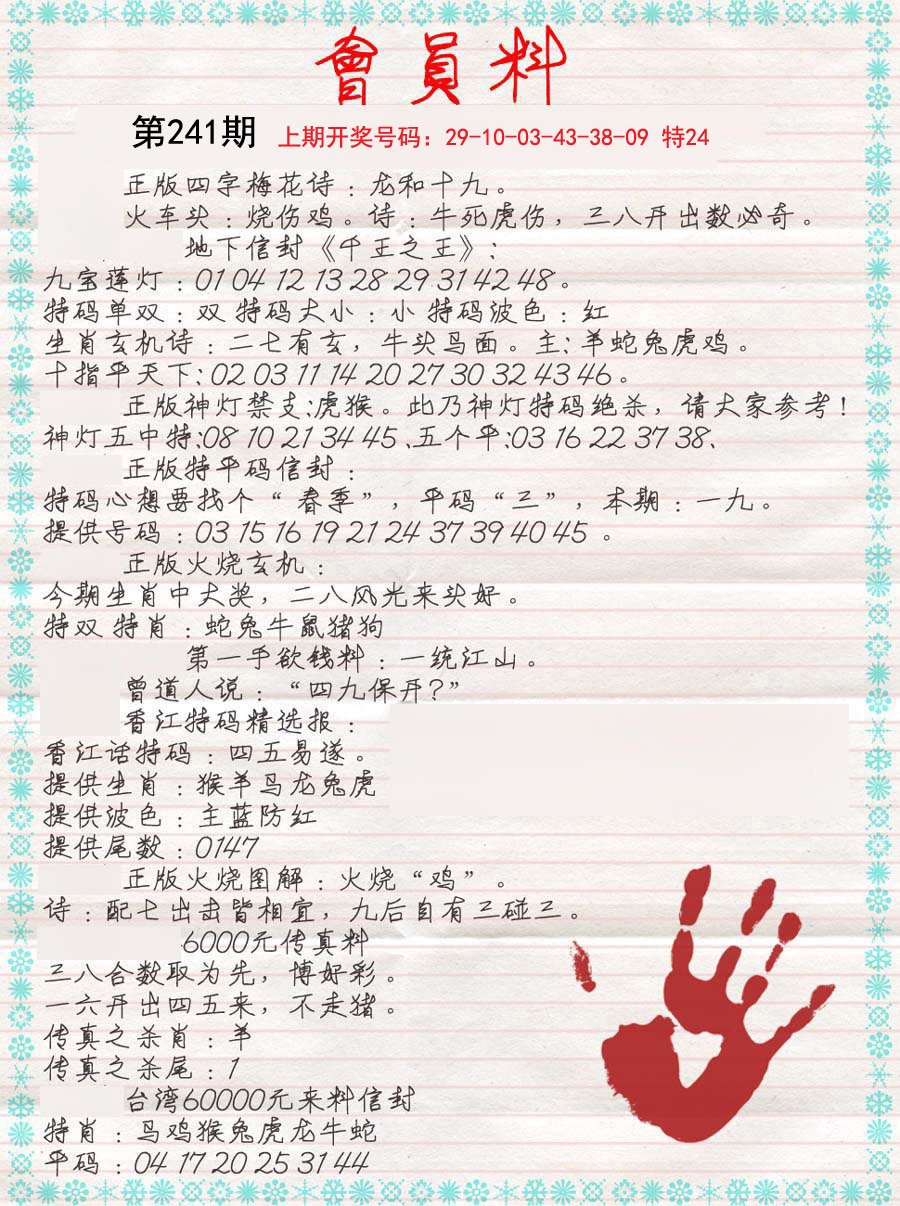 會員料
第241期 上期开奖号码：29-10-03-43-38-09 特24
正版四字梅花诗：龙和十九。
火车头：烧伤鸡。诗：牛死虎伤，三八开出数必奇。
地下信封《千王之王》：
九宝莲灯：01 04 12 13 28 29 31 42 48。
特码单双：双 特码大小：小 特码波色：红
生肖玄机诗：二七有玄，牛头鸟面。主：羊蛇兔虎鸡。
十指平天下：02 03 11 14 20 27 30 32 43 46。
正版神灯禁支：虎猴。此乃神灯特码绝杀，请大家参考！
神灯五中特：08 10 21 34 45、五个平：03 16 22 37 38、
正版特平码信封：
特码心想要找个“春季”，平码“三”，本期：一九。
提供号码：03 15 16 19 21 24 37 39 40 45 。
正版火烧玄机：
今期生肖中大奖，二八风光来头好。
特双 特肖：蛇兔牛鼠猪狗
第一手欲钱料：一统江山。
曾道人说：“四九保开？”
香江特码精选报：
香江话特码：四五易遂。
提供生肖：猴羊马龙兔虎
提供波色：主蓝防红
提供尾数：0147
正版火烧图解：火烧“鸡”。
诗：配七出击皆相宜，九后自有三碰三。
6000元传真料
三八合数取为先，博好彩。
一六开出四五来，不走猪。
传真之杀肖：羊
传真之杀尾：1
台湾60000元来料信封
特肖：马鸡猴兔虎龙牛蛇
平码：04 17 20 25 31 44